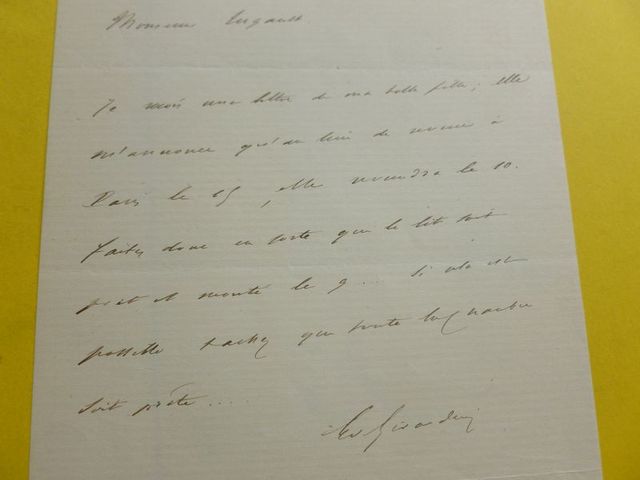 Monsieur
Je reçois une lettre de ma belle fille ; elle
m'annonce qu'au lieu de revenir à
Paris le 15, elle reviendra le 10.
Faites donc en sorte que le lit soit
prêt et monté le 9... Si cela est
possible tachez que toute la chambre
soit prête....
Girardin